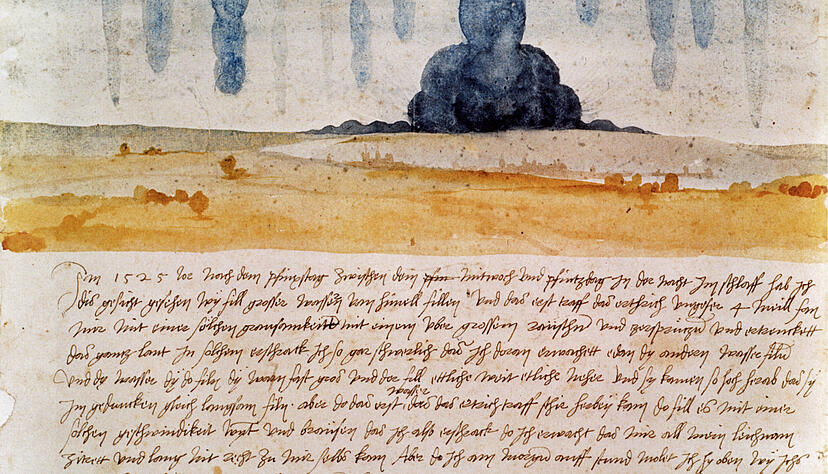 Im 1525 Jor noch dem pfinxstag zwischen dem pfin Mitwoch und pfintzdag in der nacht im schlaff hab ich
dis gesicht gesehen wy fill grosser wassern vom himell fillen Und das erst traff das erthrich ungefer 4 meill fan
mir mit einer solchen grausamkeitt mit einem uber grossem rauschn und zersprützn und ertrenckett
das gantz lant In solchem erschrack ich so gar schwerlich das ich doran erwachett edan dy andern wasser filn
Und dy wasser dy do filn dy warn fast gros und der fill ettliche weit etliche neher und sy kamen so hoch herab das sy
im gedancken gleich langsam filn. aber do das erst wasser das das ertrich traff schir herbey kam do fill es mit einer
solchen geschwindikeit wynt und braüsen das ich also erschrack do ich erwacht das mir all mein leichnam
zitrett und lang nit recht zu mir selbs kam Aber do ich am morgn auff stund molet ich hy oben wy ichs